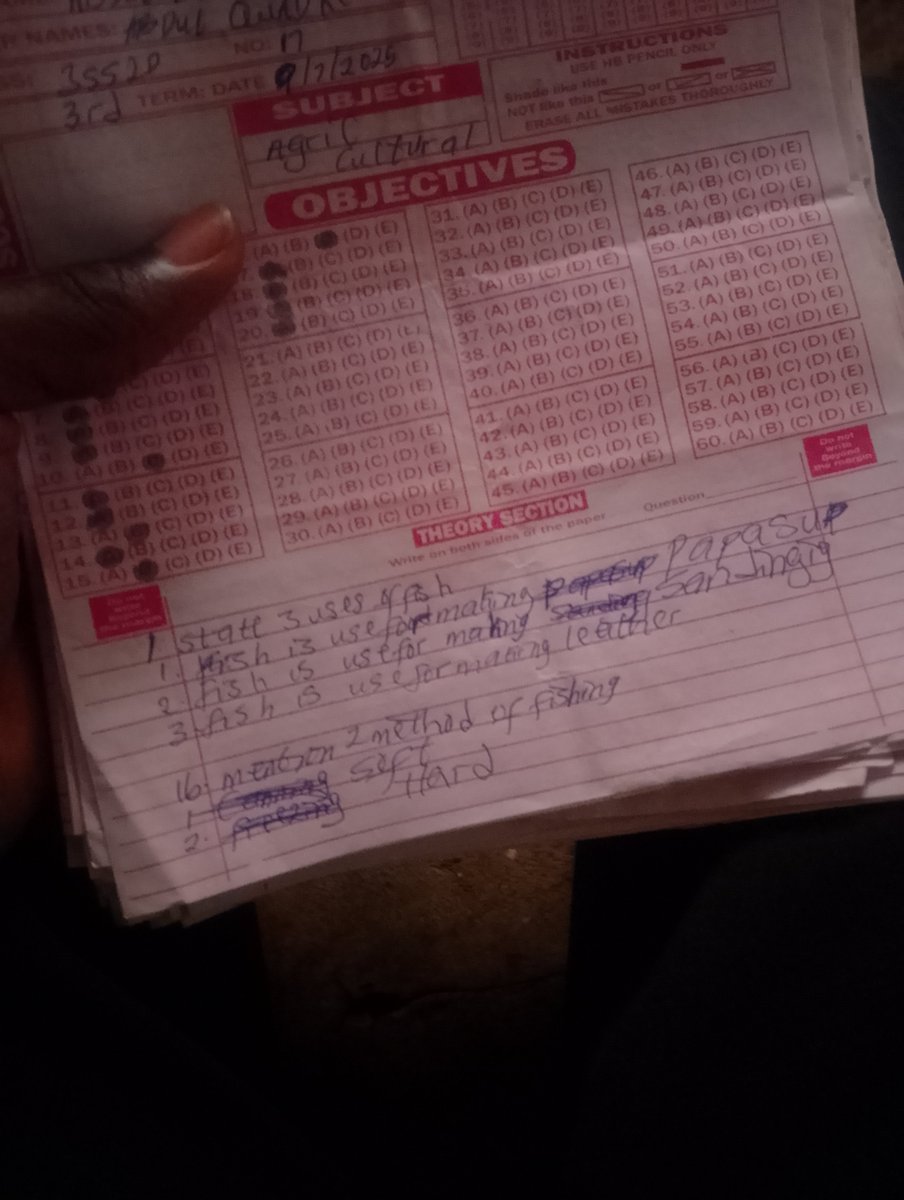 NAMES:
NO: 17
3SS2D
3rd TERM: DATE 9/7/2025
SUBJECT
Agric
Cultural
INSTRUCTIONS
USE HB PENCIL ONLY
Shade like this
NOT like this or or
ERASE ALL MISTAKES THOROUGHLY
OBJECTIVES
(A) (B) (D) (E)
(B) (C) (D) (E)
18. (B) (C) (D) (E)
19. (B) (C) (D) (E)
20. (B) (C) (D) (E)
21. (A) (B) (C) (D) (E)
22. (A) (B) (C) (D) (E)
23. (A) (B) (C) (D) (E)
24. (A) (B) (C) (D) (E)
25. (A) (B) (C) (D) (E)
26. (A) (B) (C) (D) (E)
27. (A) (B) (C) (D) (E)
28. (A) (B) (C) (D) (E)
29. (A) (B) (C) (D) (E)
30. (A) (B) (C) (D) (E)
31. (A) (B) (C) (D) (E)
32. (A) (B) (C) (D) (E)
33. (A) (B) (C) (D) (E)
34. (A) (B) (C) (D) (E)
35. (A) (B) (C) (D) (E)
36. (A) (B) (C) (D) (E)
37. (A) (B) (C) (D) (E)
38. (A) (B) (C) (D) (E)
39. (A) (B) (C) (D) (E)
40. (A) (B) (C) (D) (E)
41. (A) (B) (C) (D) (E)
42. (A) (B) (C) (D) (E)
43. (A) (B) (C) (D) (E)
44. (A) (B) (C) (D) (E)
45. (A) (B) (C) (D) (E)
46. (A) (B) (C) (D) (E)
47. (A) (B) (C) (D) (E)
48. (A) (B) (C) (D) (E)
49. (A) (B) (C) (D) (E)
50. (A) (B) (C) (D) (E)
51. (A) (B) (C) (D) (E)
52. (A) (B) (C) (D) (E)
53. (A) (B) (C) (D) (E)
54. (A) (B) (C) (D) (E)
55. (A) (B) (C) (D) (E)
56. (A) (B) (C) (D) (E)
57. (A) (B) (C) (D) (E)
58. (A) (B) (C) (D) (E)
59. (A) (B) (C) (D) (E)
60. (A) (B) (C) (D) (E)
10. (A) (B) (D) (E)
11. (B) (C) (D) (E)
12. (B) (C) (D) (E)
13. (A) (C) (D) (E)
14. (B) (C) (D) (E)
15. (A) (C) (D) (E)
Do not
write
Beyond
the margin
Do not
write
Beyond
the margin
THEORY SECTION
Write on both sides of the paper Question
1 state 3 uses of fish
1. fish is use for making Papasup
2. fish is use for making
3. fish is use for making leather
1b. mention 2 method of fishing
1. Soft
2. Hard